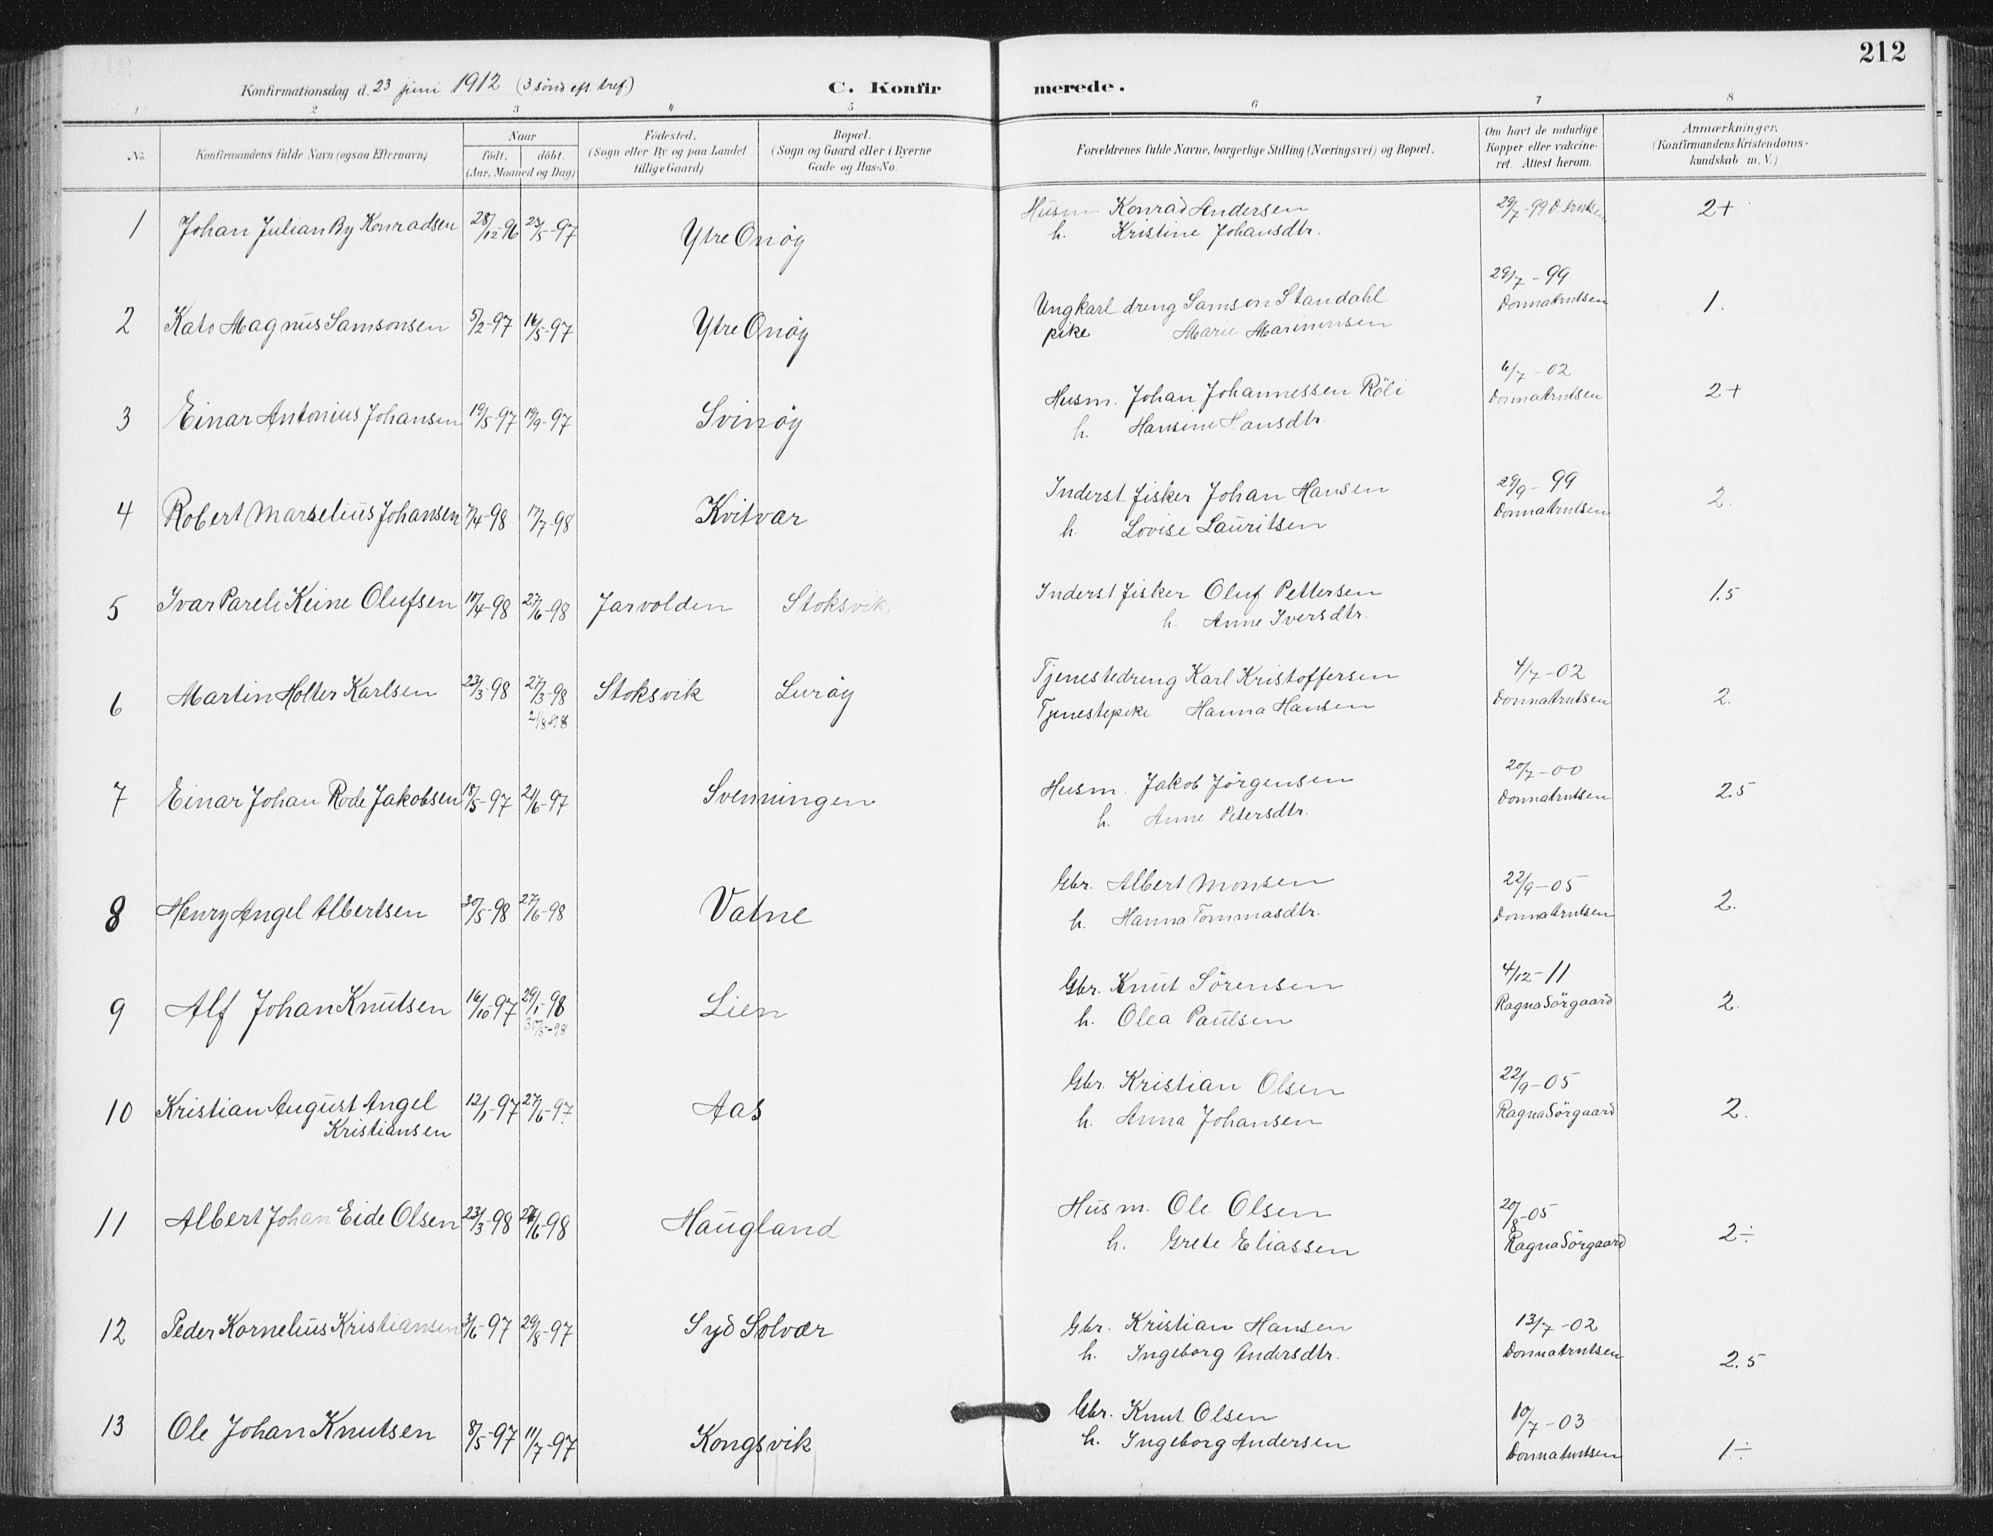 212
Konfirmationsdag d. 23 juni 1912 (3 sønd eft tref.) C. Konfirmerede.
1 2 3 4 5 6 7 8
No. Konfirmandens fulde Navn (ogsaa Efternavn) Naar født, døbt. (Aar, Maaned og Dag) Fødested. (Sogn eller By og paa Landet tillige Gaard) Bopæl. (Sogn og Gaard eller i Byerne Gade og Hus-No. Forældrenes fulde Navne, borgerlige Stilling (Næringsvei) og Bopæl. Om havt de naturlige Kopper eller vakcineret. Attest herom. Anmærkninger. (Konfirmandens Kristendomskundskab m. V.)
1 Johan Julian By Konradsen 28/12-96 23/5-97 Ytre Onøy Husm. Konrad Andersen 29/7-99 2+
h. Kristine Johansdtr.
2 Kato Magnus Samsonsen 5/2-97 16/5-97 Ytre Onøy Ungkarl dreng Samson Standahl 29/7-99 Donna Arntsen 1.
pike Marie Marinensen
3 Einar Antonius Johansen 19/5-97 19/9-97 Svinøy Husm. Johan Johannessen Röli 6/7-02 Donna Arntsen 2+
h. Hansine Hansdtr.
4 Robert Marselius Johansen 7/4-98 17/7-98 Kvitvær Inderst fisker Johan Hansen 29/9-99 Donna Arntsen 2.
h. Lovise Lauritsen
5 Ivar Pareli Keine Olufsen 17/4-98 27/6-98 Jarvolden Stoksvik Inderst fisker Oluf Pettersen 1.5
h. Anne Iversdtr.
6 Martin Holter Karlsen 23/3-98 27/3-98 Stoksvik Lurøy Tjenestedreng Karl Kristoffersen 4/7-02 Donna Arntsen 2.
21/8-98 Tjenestepike Hanna Hansen
7 Einar Johan Rode Jakobsen 18/5-97 21/6-97 Svenningen Husm. Jakob Jørgensen 20/7-00 Donna Arntsen 2.5
h. Anne Petersdtr.
8 Henry Angel Albertsen 30/5-98 27/6-98 Vatne Gbr. Albert Monsen 22/9-05 Donna Arntsen 2.
h. Hanna Tommasdtr.
9 Alf Johan Knutsen 16/10-97 29/1-98 Lien Gbr. Knut Sörensen 4/12-11 Ragna Sörgaard 2.
30/5-98 h. Olea Paulsen
10 Kristian August Angel 12/1-97 27/6-97. Aas Gbr. Kristian Olsen 22/9-05 Ragna Sörgaard 2.
Kristiansen h. Anna Johansen
11 Albert Johan Eide Olsen 23/3-98 /6-98 Haugland Husm. Ole Olsen 20/8-05 Ragna Sörgaard 2÷
h. Grete Eliassen
12 Peder Kornelius Kristiansen 3/6-97 29/8-97 Syd Solvær Gbr. Kristian Hansen 13/7-02 Donna Arntsen 2.5
h. Ingeborg Andersdtr.
13 Ole Johan Knutsen 8/5-97 11/7-97 Kongsvik Gbr. Knut Olsen 10/7-03 Donna Arntsen 1÷
h. Ingeborg Andersen